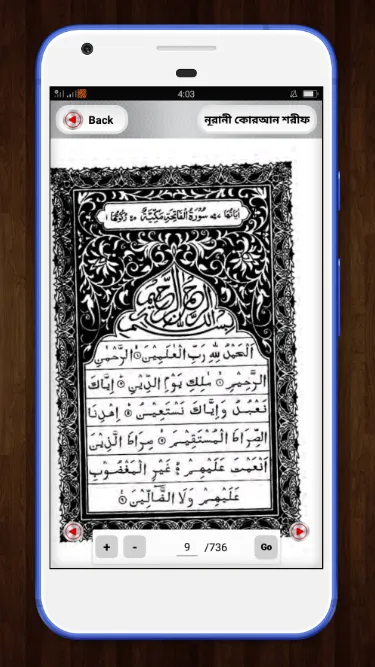 4:03
Back
নূরানী কোরআন শরীফ
سُوْرَةُ الْفَاتِحَةِ مَكِّيَّةٌ
بِسْمِ اللّٰهِ الرَّحْمٰنِ الرَّحِيْمِ
اَلْحَمْدُ لِلّٰهِ رَبِّ الْعٰلَمِيْنَ ۝ الرَّحْمٰنِ
الرَّحِيْمِ ۝ مٰلِكِ يَوْمِ الدِّيْنِ ۝ اِيَّاكَ
نَعْبُدُ وَاِيَّاكَ نَسْتَعِيْنُ ۝ اِهْدِنَا
الصِّرَاطَ الْمُسْتَقِيْمَ ۝ صِرَاطَ الَّذِيْنَ
اَنْعَمْتَ عَلَيْهِمْ ۝ غَيْرِ الْمَغْضُوْبِ
عَلَيْهِمْ وَلَا الضَّآلِّيْنَ ۝
+ - 9 /736 Go